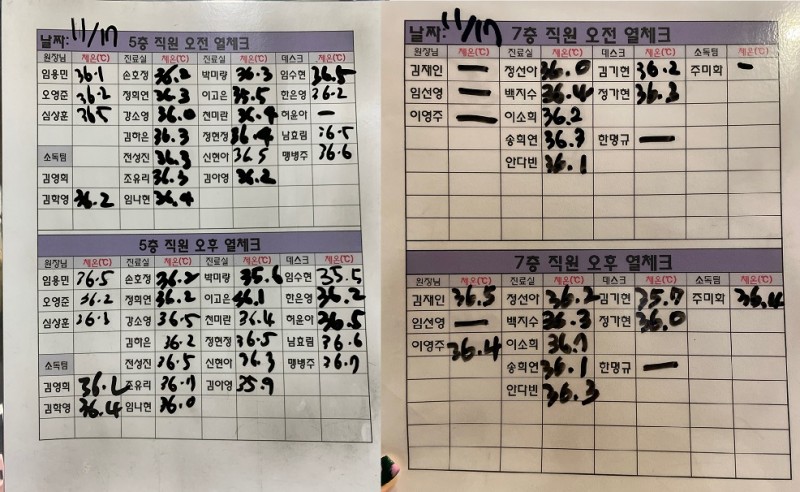 날짜: 11/17 5층 직원 오전 열체크
원장님 체온(℃) 진료실 체온(℃) 진료실 체온(℃) 데스크 체온(℃)
임용민 36.1 손호정 36.2 박미량 36.3 임수현 36.5
오영준 36.2 정희연 36.3 이고은 35.5 한은영 36.2
심상훈 36.5 강소영 36.0 천미란 36.4 허윤아 -
김하은 36.3 정현정 36.4 남효림 36.5
소독팀 전성진 36.3 신현아 36.5 맹병주 36.6
김영희 조유리 36.3 김아영 36.2
김학영 36.2 임나현 36.4
5층 직원 오후 열체크
원장님 체온(℃) 진료실 체온(℃) 진료실 체온(℃) 데스크 체온(℃)
임용민 36.5 손호정 36.2 박미량 35.6 임수현 35.5
오영준 36.2 정희연 36.2 이고은 36.1 한은영 36.2
심상훈 36.1 강소영 36.5 천미란 36.4 허윤아 36.5
김하은 36.2 정현정 36.5 남효림 36.6
소독팀 전성진 36.5 신현아 36.3 맹병주 36.7
김영희 36.2 조유리 36.7 김아영 35.9
김학영 36.4 임나현 36.0
날짜: 11/17 7층 직원 오전 열체크
원장님 체온(℃) 진료실 체온(℃) 데스크 체온(℃) 소독팀 체온(℃)
김재인 - 정선아 36.0 김기현 36.2 주미화 -
임선영 - 백지수 36.4 정가현 36.3
이영주 - 이소희 36.2
송희연 36.3 한명규 -
안다빈 36.1
7층 직원 오후 열체크
원장님 체온(℃) 진료실 체온(℃) 데스크 체온(℃) 소독팀 체온(℃)
김재인 36.5 정선아 36.2 김기현 35.7 주미화 36.4
임선영 - 백지수 36.3 정가현 36.0
이영주 36.4 이소희 36.7
송희연 36.1 한명규 -
안다빈 36.3